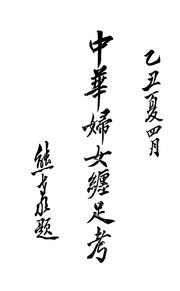 乙丑夏四月
中華婦女纏足考
熊題